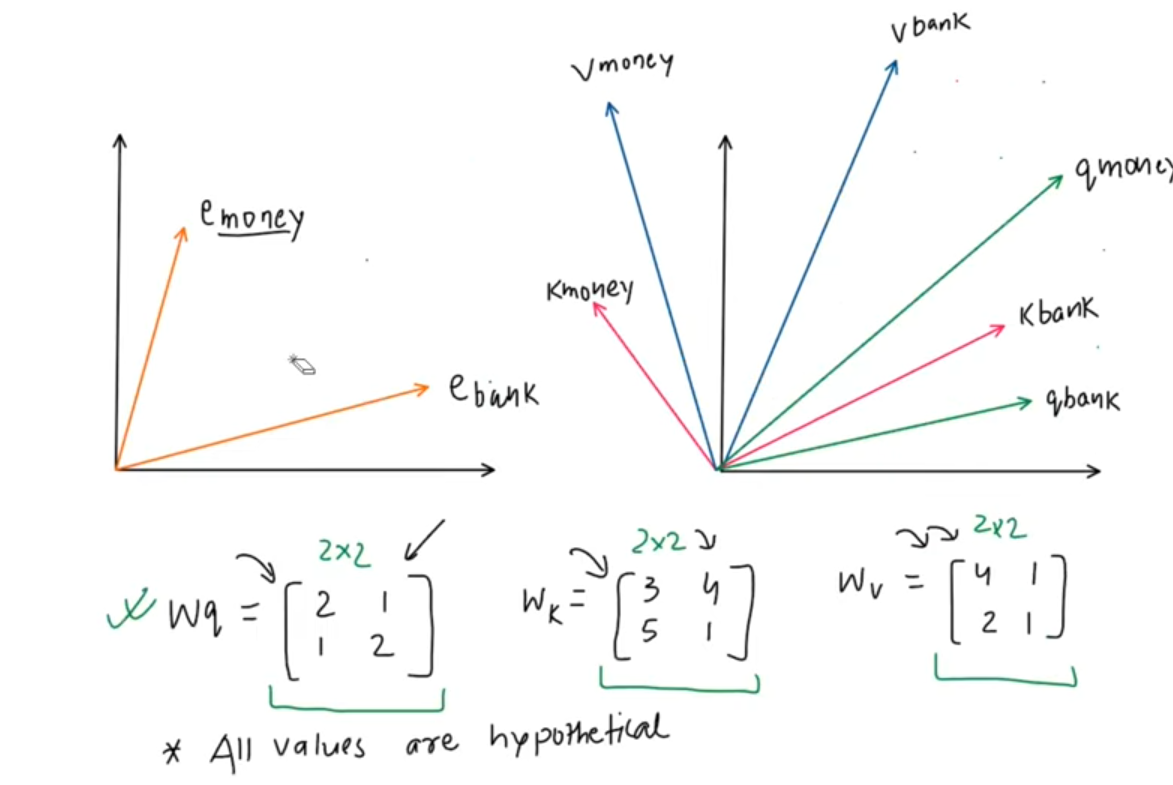 emoney
ebank
Vmoney
Vbank
qmoney
Kmoney
Kbank
qbank
2x2
Wq = [2 1
1 2]
2x2
WK = [3 4
5 1]
2x2
WV = [4 1
2 1]
* All values are hypothetical